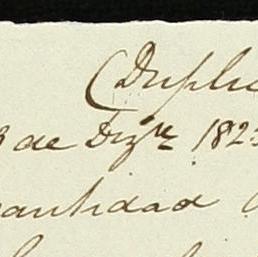 (Duplic
de Dizre 182
cantidad